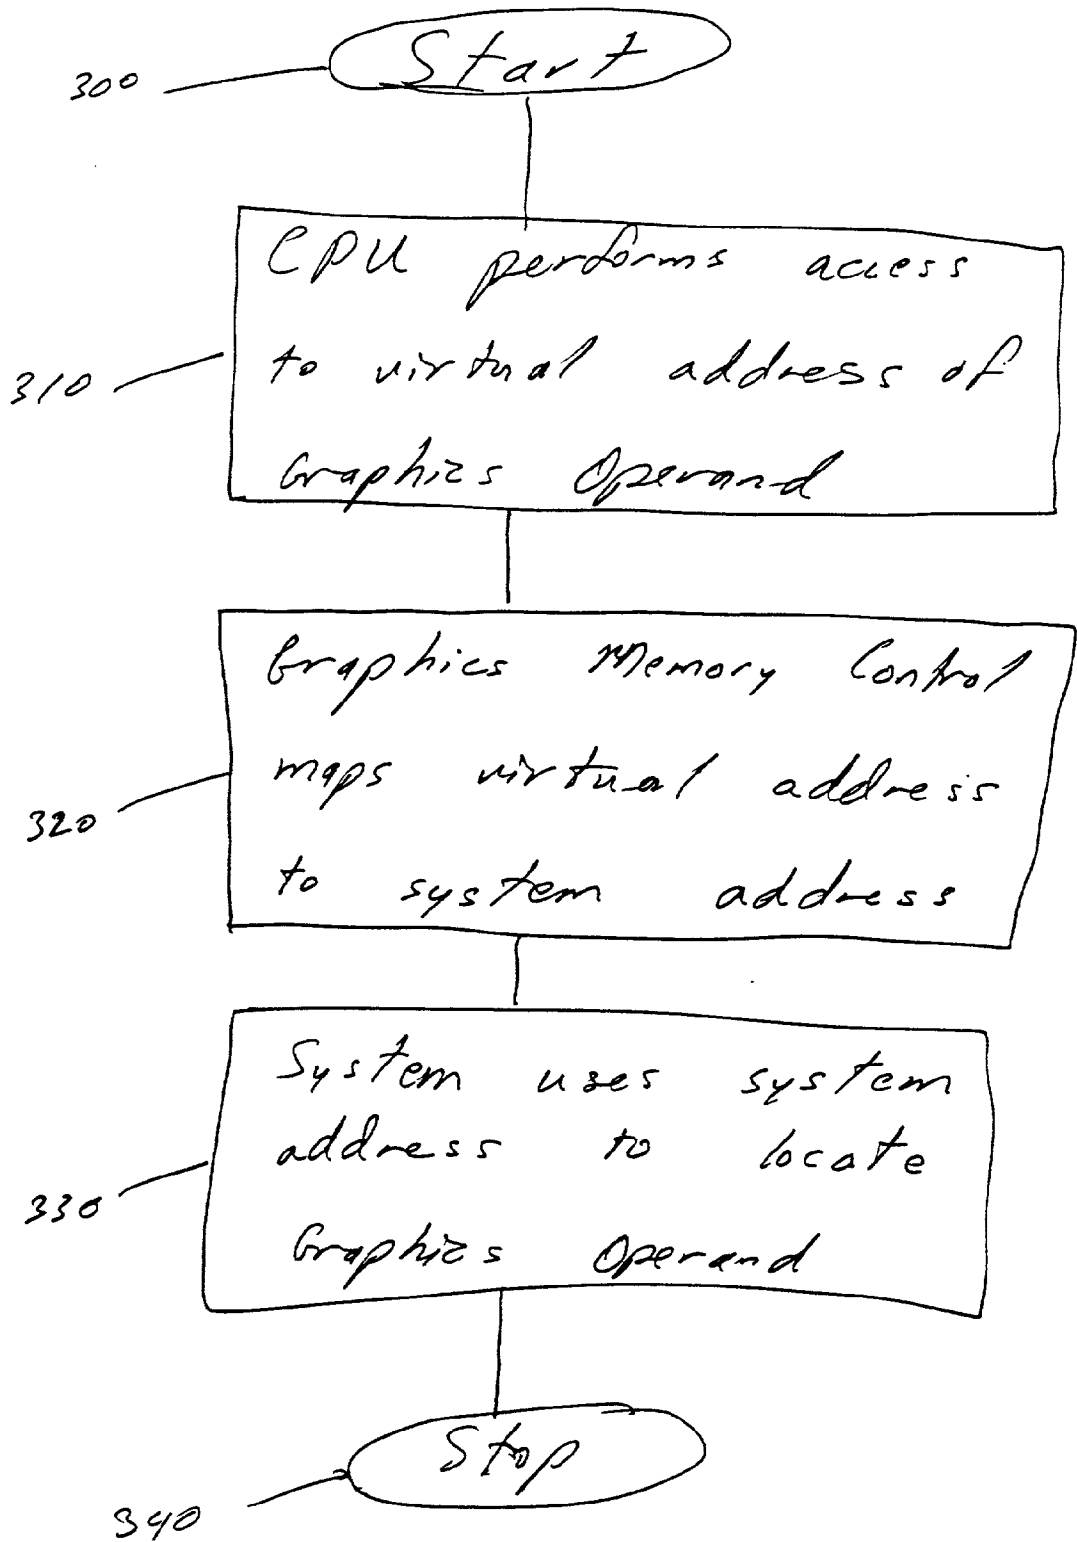 Start
300
CPU performs access
to virtual address of
310
Graphics Operand
Graphics Memory Control
maps virtual address
320
to system address
System uses system
address to locate
330
Graphics Operand
Stop
340